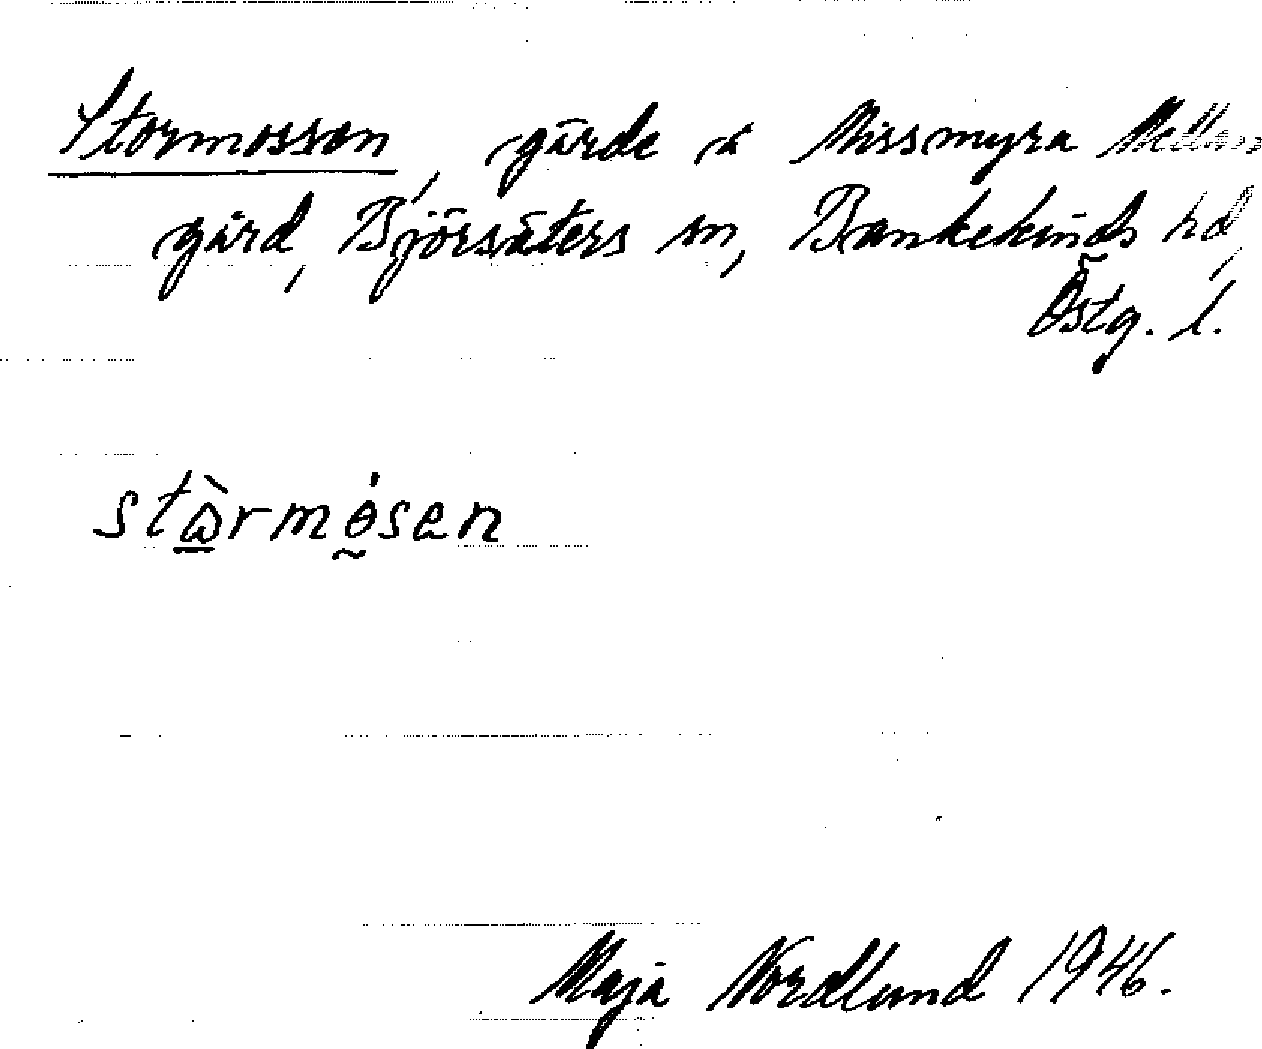 Stormossen, gärde å Missmyra Mellan
gård, Björsäters sn, Bankekinds hd,
Östg. l.
stὼ̲rmɵ̰́sen
Maja Nordlund 1946.